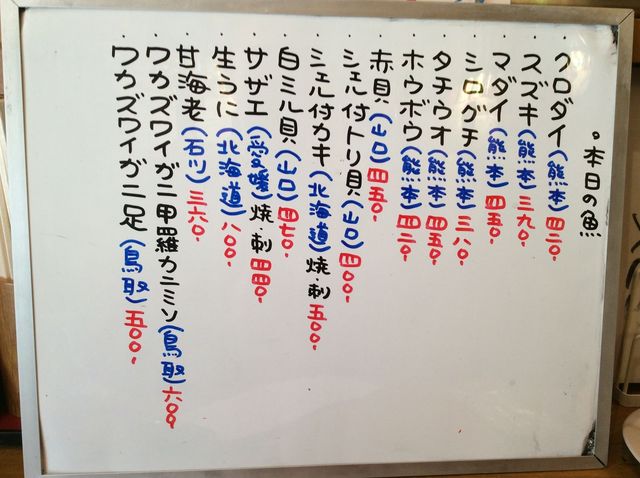 。本日の魚
・クロダイ(熊本)四二〇.
・スズキ(熊本)三九〇.
・マダイ(熊本)四五〇.
・シログチ(熊本)三八〇.
・タチウオ(熊本)四五〇.
・ホウボウ(熊本)四二〇.
・赤貝(山口)四五〇.
・シェル付トリ貝(山口)四〇〇.
・シェル付カキ(北海道)焼・刺五〇〇.
・白ミル貝(山口)四七〇.
・サザエ(愛媛)焼・刺四四〇.
・生うに(北海道)八〇〇.
・甘海老(石川)三六〇.
・ワカズワイガニ甲羅カニミソ(鳥取)六〇〇
・ワカズワイガニ足(鳥取)五〇〇.